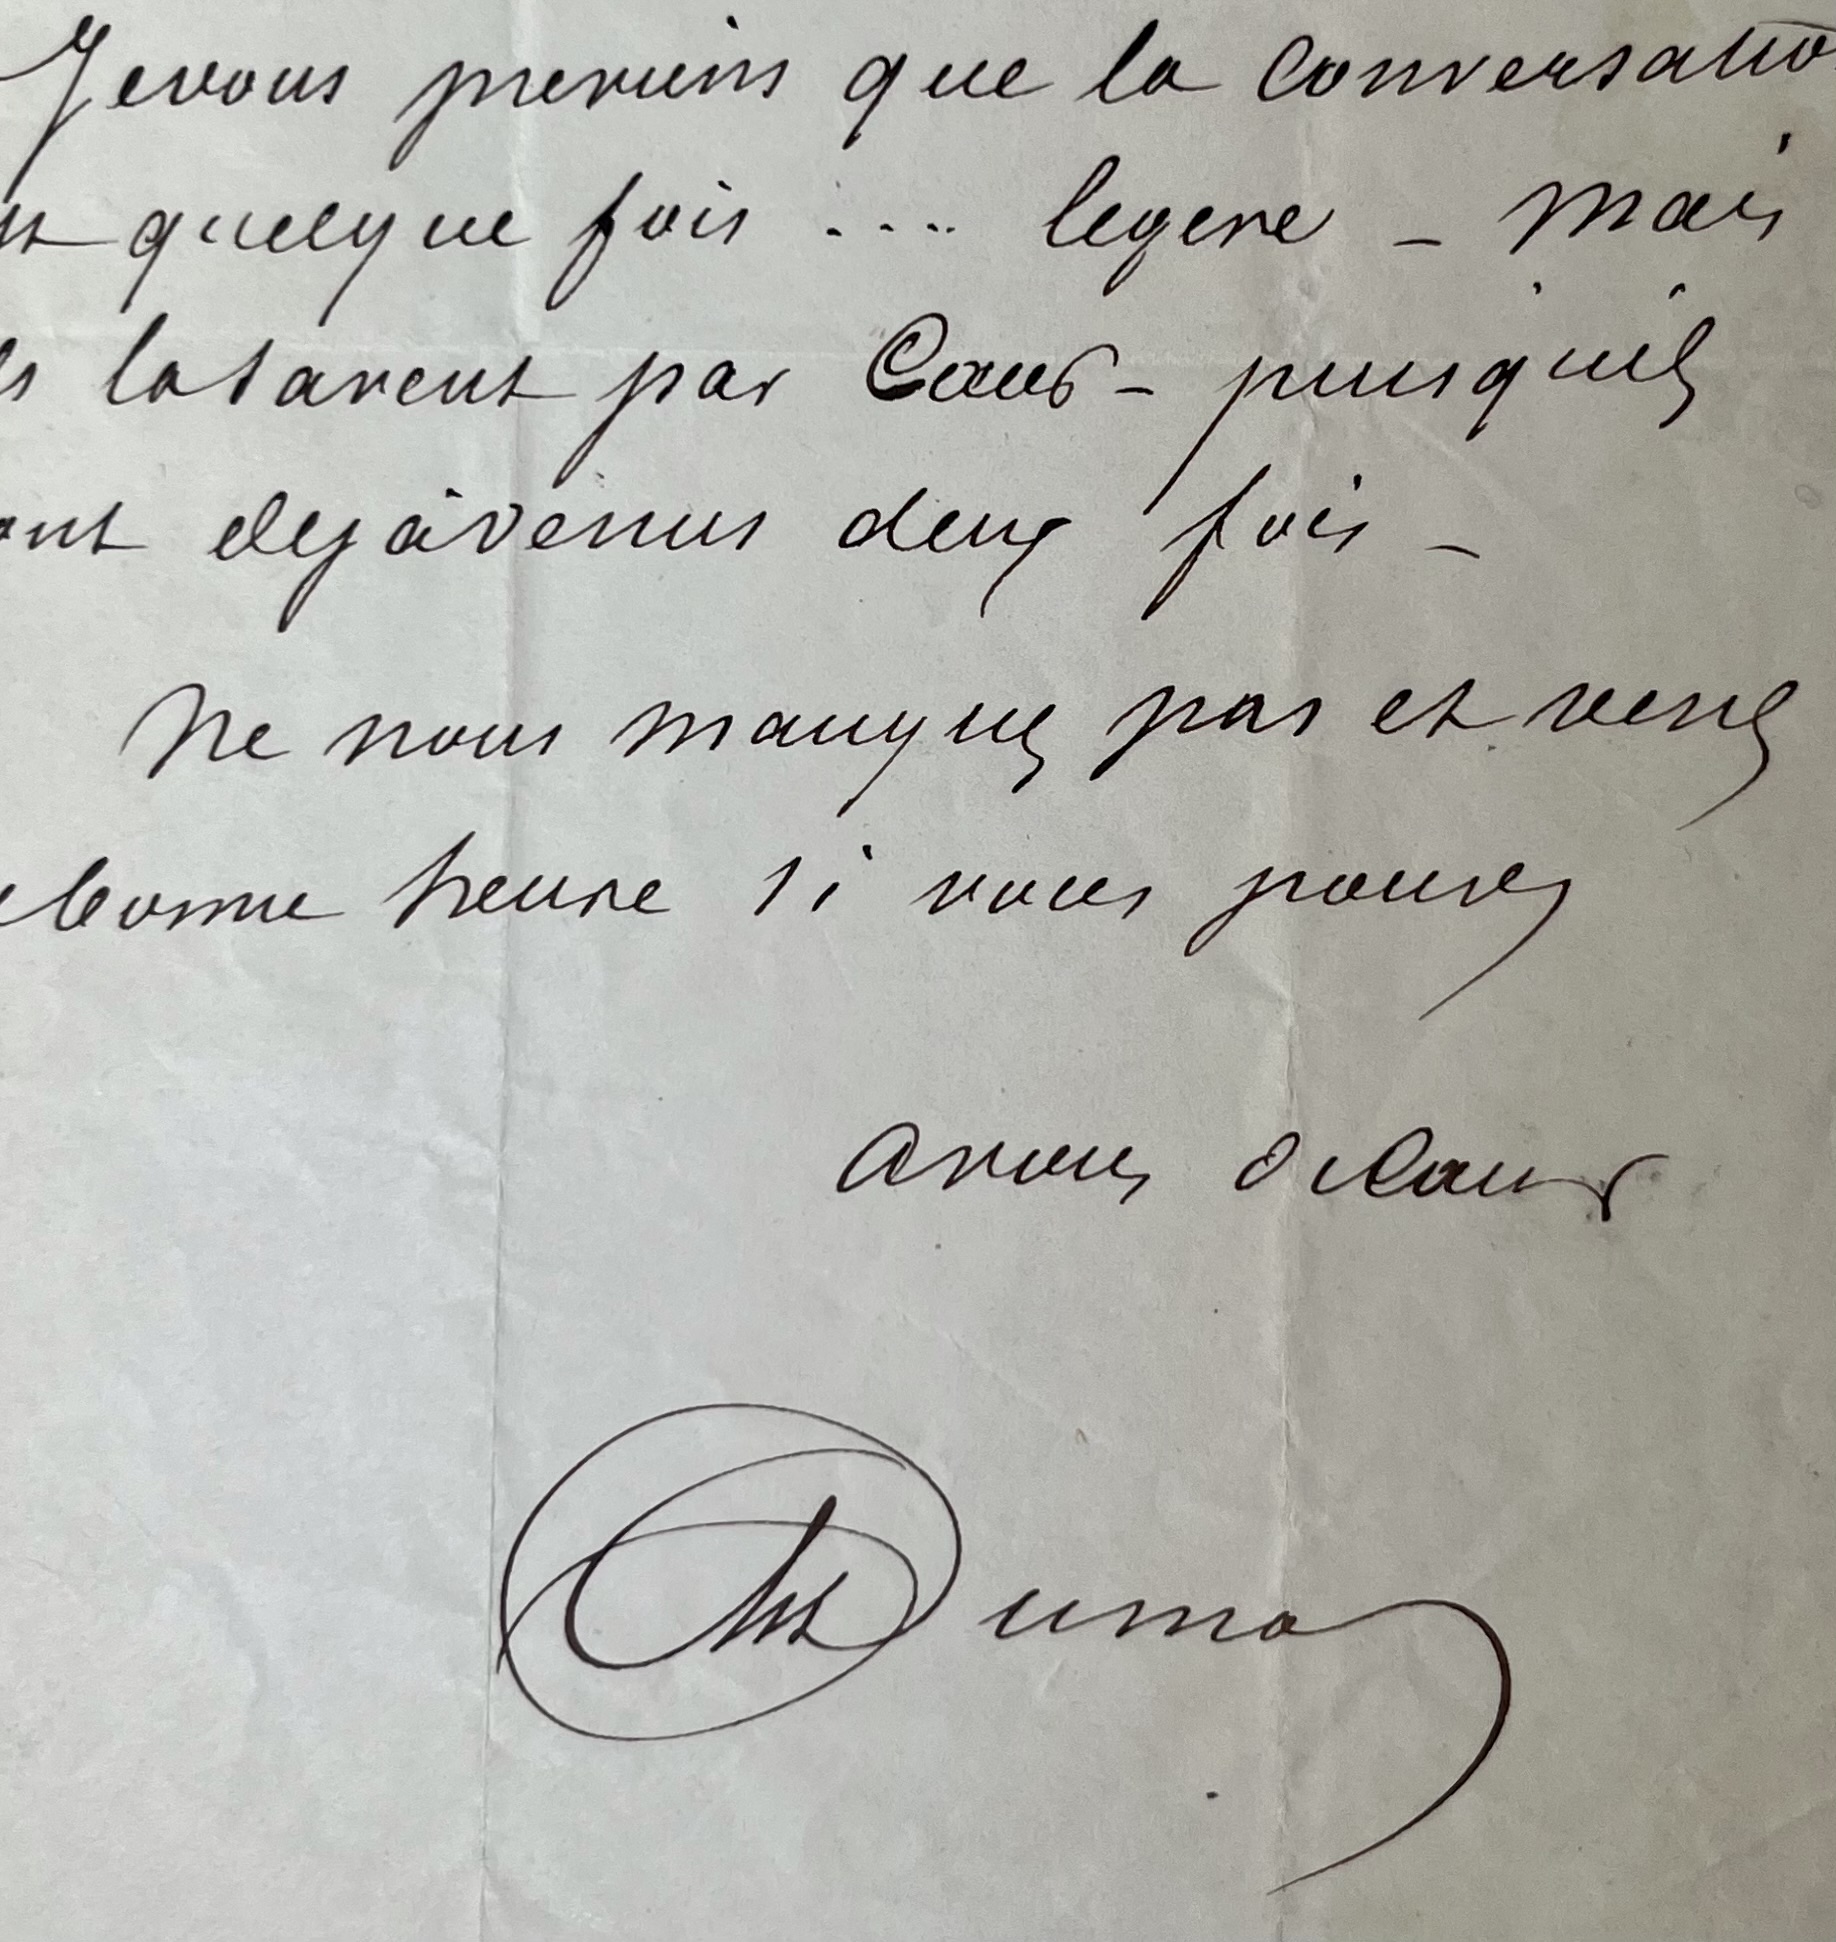 Je vous previens que la Conversatio
est quelque fois .... legere – Mais
ls la savent par Cœur – puisquils
ont deja venus deux fois –
Ne nous manquez pas et venez
e bonne heure si vous pouvez
A vous de Cœur
Dumas